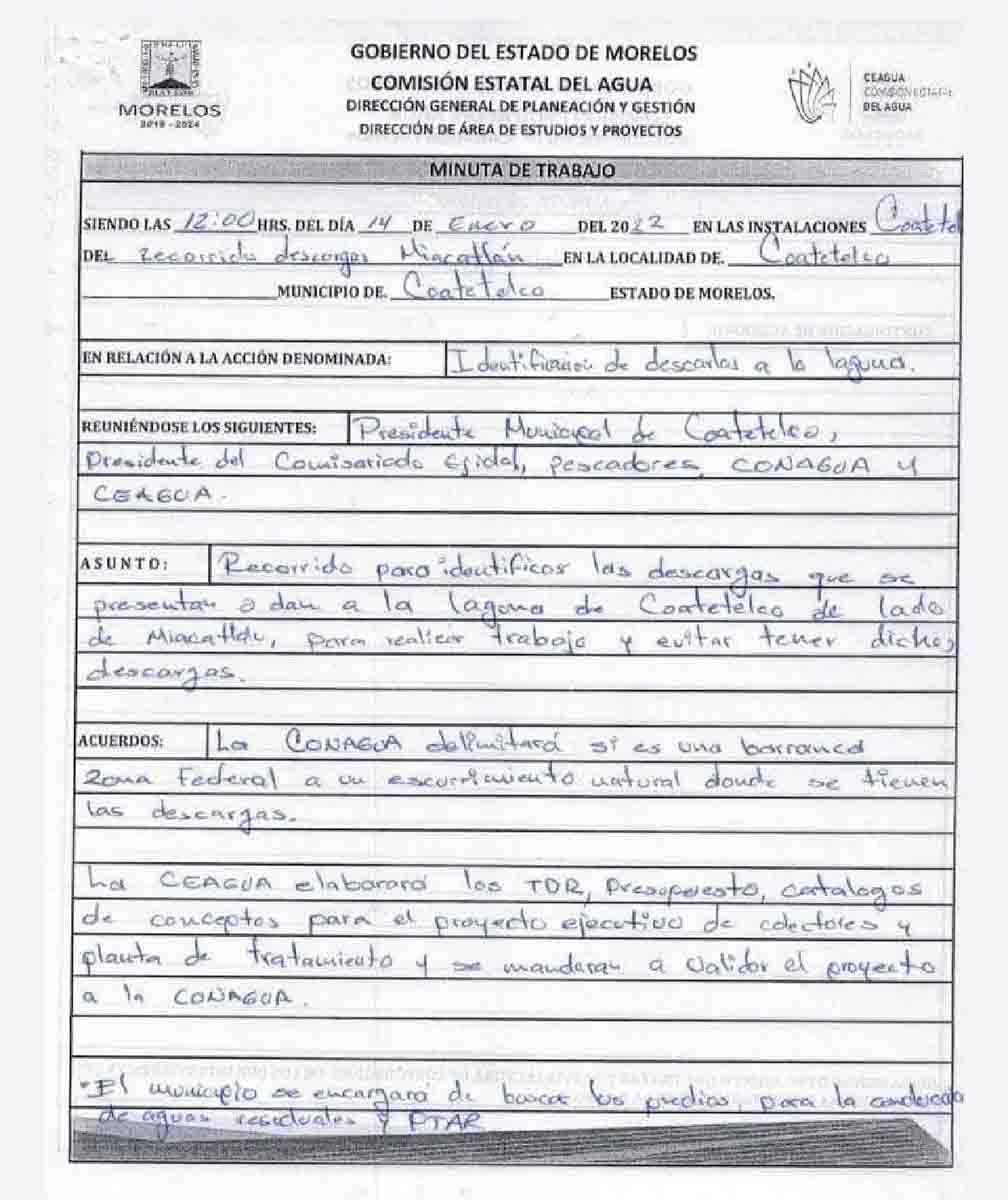 GOBIERNO DEL ESTADO DE MORELOS
COMISIÓN ESTATAL DEL AGUA
DIRECCIÓN GENERAL DE PLANEACIÓN Y GESTIÓN
DIRECCIÓN DE ÁREA DE ESTUDIOS Y PROYECTOS
MORELOS
2018 - 2024
CEAGUA
COMISIÓN ESTATAL
DEL AGUA
MINUTA DE TRABAJO
SIENDO LAS 12:00 HRS. DEL DÍA 14 DE Enero DEL 2022 EN LAS INSTALACIONES Coatetel
DEL recorrido descargas Miacatlán EN LA LOCALIDAD DE. Coatetelco
MUNICIPIO DE. Coatetelco ESTADO DE MORELOS.
EN RELACIÓN A LA ACCIÓN DENOMINADA: Identificacion de a la laguna.
REUNIÉNDOSE LOS SIGUIENTES: Presidente Municipal de Coatetelco,
Presidente del Comisariado Ejidal, pescadores, CONAGUA y
CEAGUA.
ASUNTO: Recorrido para identificar las descargas que se
presentan o dan a la laguna de Coatetelco de lado
de Miacatlán, para realizar trabajo y evitar tener dichas
descargas.
ACUERDOS: La CONAGUA delimitará si es una barranca
zona Federal a un escurrimiento natural donde se tienen
las descargas.
La CEAGUA elaborará los TDR, Presupuesto, catalogos
de conceptos para el proyecto ejecutivo de colectores y
planta de tratamiento y se mandaran a validar el proyecto
a la CONAGUA.
*El municipio se encargará de buscar los predios, para la
de aguas residuales y PTAR